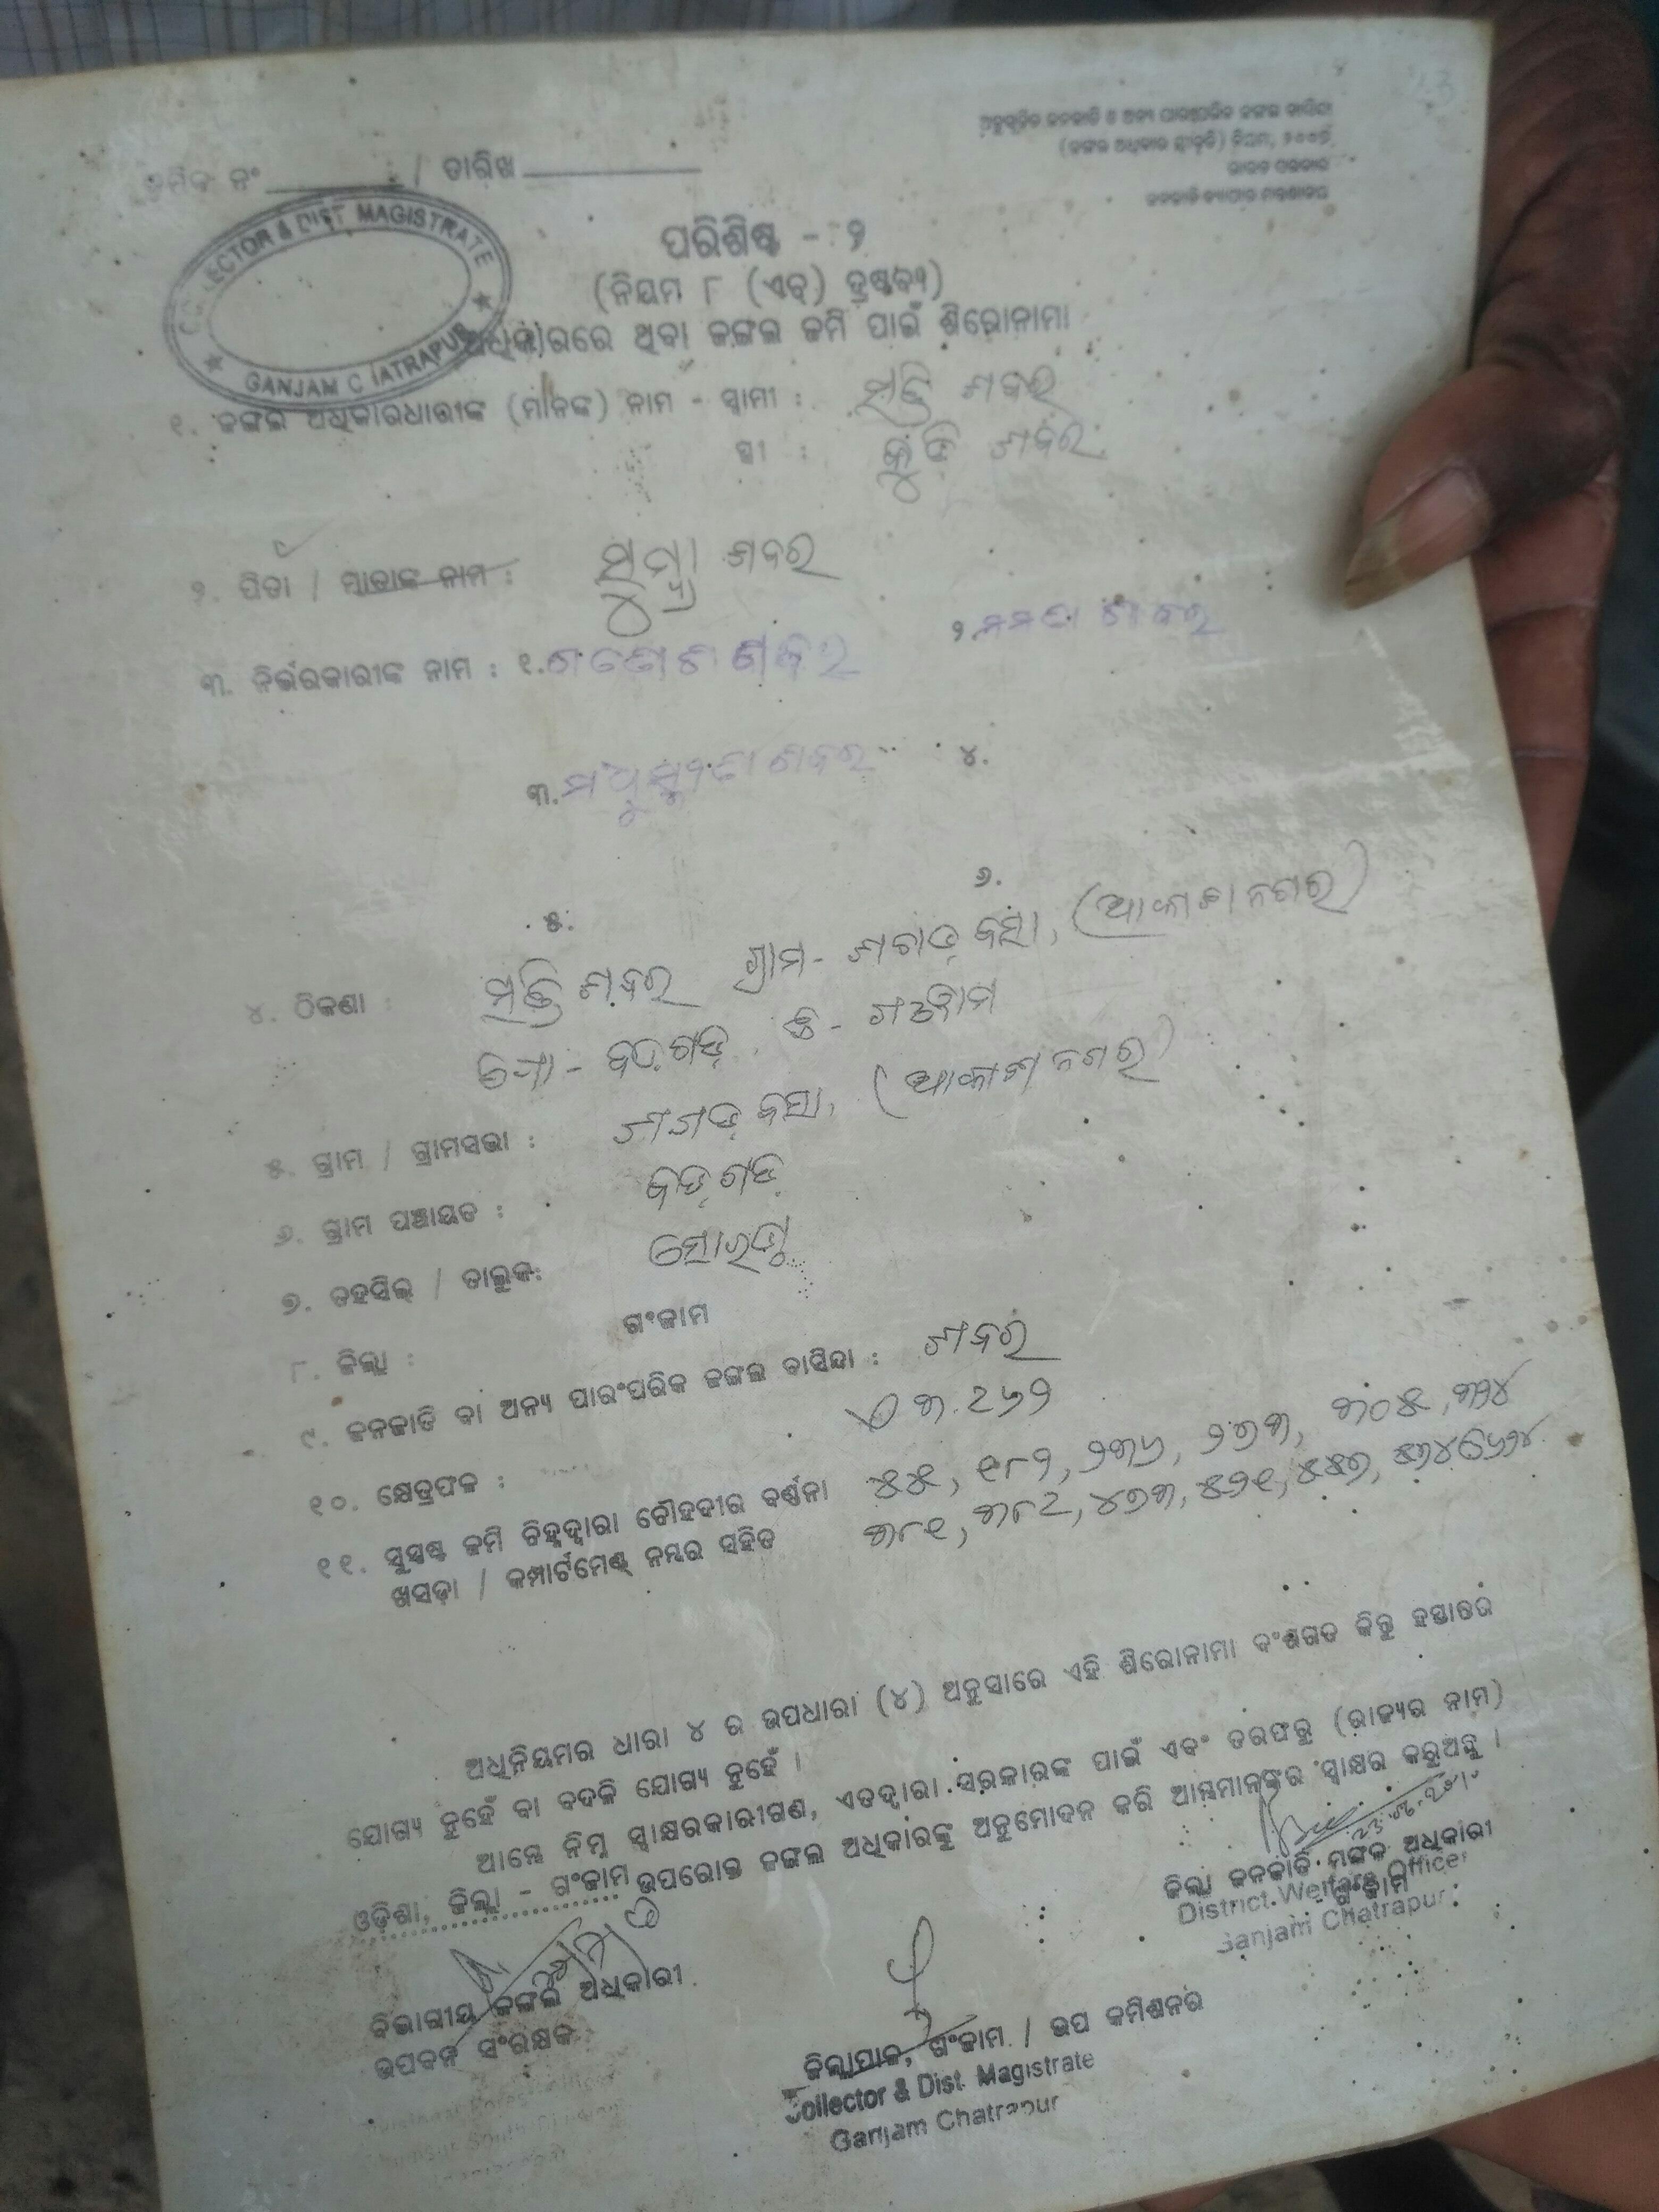 କ୍ରମିକ ନଂ / ତାରିଖ
ଅନୁସୂଚିତ ଜନଜାତି ଓ ଅନ୍ୟ ପାରମ୍ପରିକ ଜଙ୍ଗଲ ବାସିନ୍ଦା
(ଜଙ୍ଗଲ ଅଧିକାର ସ୍ୱୀକୃତି) ନିୟମ, ୨୦୦୭
ଭାରତ ସରକାର
ଜନଜାତି ବ୍ୟାପାର ମନ୍ତ୍ରଣାଳୟ
COLLECTOR & DIST. MAGISTRATE
GANJAM CHATRAPUR
ପରିଶିଷ୍ଟ - ୨
(ନିୟମ ୮ (ଏଚ୍) ଦ୍ରଷ୍ଟବ୍ୟ)
ଅଧିକାରରେ ଥିବା ଜଙ୍ଗଲ ଜମି ପାଇଁ ଶିରୋନାମା
୧. ଜଙ୍ଗଲ ଅଧିକାରଧାରୀଙ୍କ (ମାନଙ୍କ) ନାମ - ସ୍ୱାମୀ : ଶବର
ସ୍ତ୍ରୀ : ଶବର
୨. ପିତା / ମାତାଙ୍କ ନାମ : ଶବର
୩. ନିର୍ଭରକାରୀଙ୍କ ନାମ : ୧. ଗଣେଶ ଶବର ୨. ମମତା ଶବର
୩. ଶବର ୪.
୫. ୬.
୪. ଠିକଣା : ଶବର ଗ୍ରାମ - ଶଗଡ଼ ବସା, (ଆକାଶ ନଗର)
ପୋ - ବଡ଼ଗଡ଼, ଜି - ଗଞ୍ଜାମ
୫. ଗ୍ରାମ / ଗ୍ରାମସଭା : ଶଗଡ଼ ବସା, (ଆକାଶ ନଗର)
୬. ଗ୍ରାମ ପଞ୍ଚାୟତ : ବଡ଼ଗଡ଼
୭. ତହସିଲ୍ / ତାଲୁକ: ସୋରଡ଼ା
୮. ଜିଲ୍ଲା : ଗଂଜାମ
୯. ଜନଜାତି ବା ଅନ୍ୟ ପାରଂପରିକ ଜଙ୍ଗଲ ବାସିନ୍ଦା : ଶବର
୧୦. କ୍ଷେତ୍ରଫଳ : ୩.୨୬୨
୧୧. ସୁସ୍ପଷ୍ଟ ଜମି ଚିହ୍ନଦ୍ୱାରା ଚୌହଦୀର ବର୍ଣ୍ଣନା ୫୫, ୧୮୨, ୨୩୬, ୨୭୩, ୩୦୫, ୩୨୪
ଖସଡ଼ା / କମ୍ପାର୍ଟମେଣ୍ଟ୍ ନମ୍ବର ସହିତ ୩୮୧, ୩୮୯, ୪୭୩, ୫୨୧, ୫୫୭,
ଅଧିନିୟମର ଧାରା ୪ ର ଉପଧାରା (୪) ଅନୁସାରେ ଏହି ଶିରୋନାମା ବଂଶଗତ କିନ୍ତୁ ହସ୍ତାନ୍ତର
ଯୋଗ୍ୟ ନୁହେଁ ବା ବଦଳି ଯୋଗ୍ୟ ନୁହେଁ ।
ଆମ୍ଭେ ନିମ୍ନ ସ୍ୱାକ୍ଷରକାରୀଗଣ, ଏତଦ୍ୱାରା ସରକାରଙ୍କ ପାଇଁ ଏବଂ ତରଫରୁ (ରାଜ୍ୟର ନାମ)
ଓଡ଼ିଶା, ଜିଲ୍ଲା - ଗଂଜାମ ଉପରୋକ୍ତ ଜଙ୍ଗଲ ଅଧିକାରଙ୍କୁ ଅନୁମୋଦନ କରି ଆମ୍ଭମାନଙ୍କର ସ୍ୱାକ୍ଷର କରୁଅଛୁ ।
ଜିଲ୍ଲା ଜନଜାତି ମଙ୍ଗଳ ଅଧିକାରୀ
ଗଂଜାମ
District Welfare Officer
Ganjam Chatrapur
ବିଭାଗୀୟ ଜଙ୍ଗଲ ଅଧିକାରୀ
ଉପବନ ସଂରକ୍ଷକ
ଜିଲ୍ଲାପାଳ, ଗଂଜାମ / ଉପ କମିଶନର
Collector & Dist. Magistrate
Ganjam Chatrapur